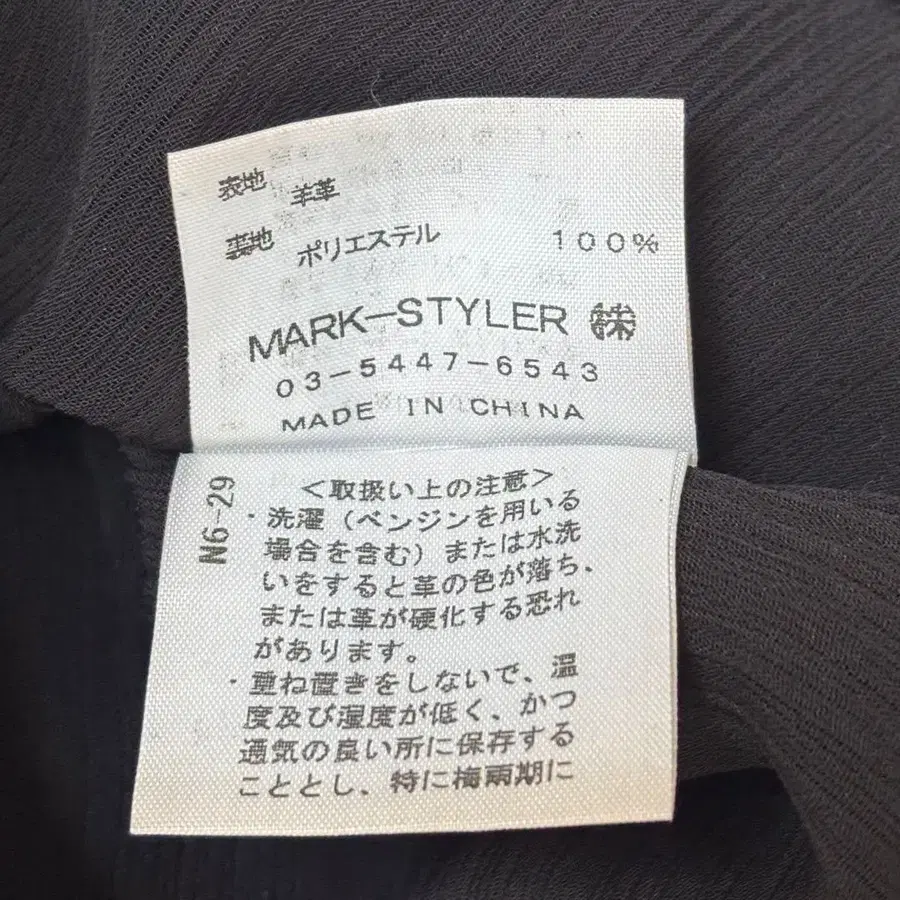 表地 羊革
裏地 ポリエステル 100%
MARK-STYLER ㈱
03-5447-6543
MADE IN CHINA
N6-29
<取扱い上の注意>
・洗濯(ベンジンを用いる
場合を含む)または水洗
いをすると革の色が落ち、
または革が硬化する恐れ
があります。
・重ね置きをしないで、温
度及び湿度が低く、かつ
通気の良い所に保存する
こととし、特に梅雨期に